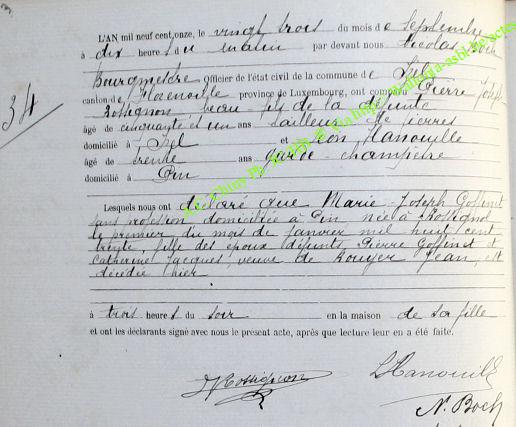 34
L'AN mil neuf cent onze, le vingt trois du mois de Septembre
à dix heures du matin par devant nous Nicolas Boch
Bourgmestre Officier de l'état civil de la commune de
canton de Florenville province de Luxembourg, ont comparu Pierre Joseph
beau-fils de la défunte
âgé de cinquante et un ans tailleur de pierres
domicilié à et Léon Hanouille
âgé de trente ans garde-champêtre
domicilié à Pin
Lesquels nous ont déclaré que Marie-Joseph Goffinet
sans profession domiciliée à Pin née à Rossignol
le premier du mois de janvier mil huit cent
trente, fille des époux défunts, Pierre Goffinet et
Catherine Jacques, veuve de Rouyer Jean, est
décédée hier
à trois heures du soir en la maison de sa fille
et ont les déclarants signé avec nous le présent acte, après que lecture leur en a été faite.
L Hanouille
N. Boch